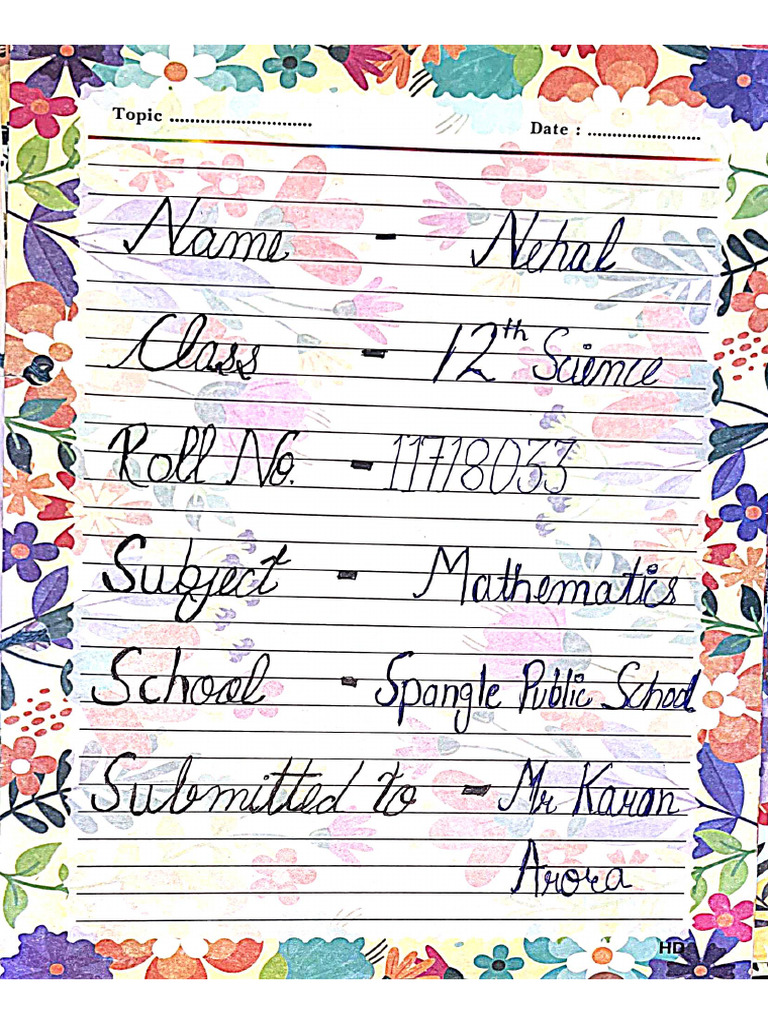 Topic ............................
Date : ......................
Name - Nehal
Class - 12th Science
Roll No. - 11718033
Subject - Mathematics
School - Spangle Public School
Submitted to - Mr Karan
Arora
HD